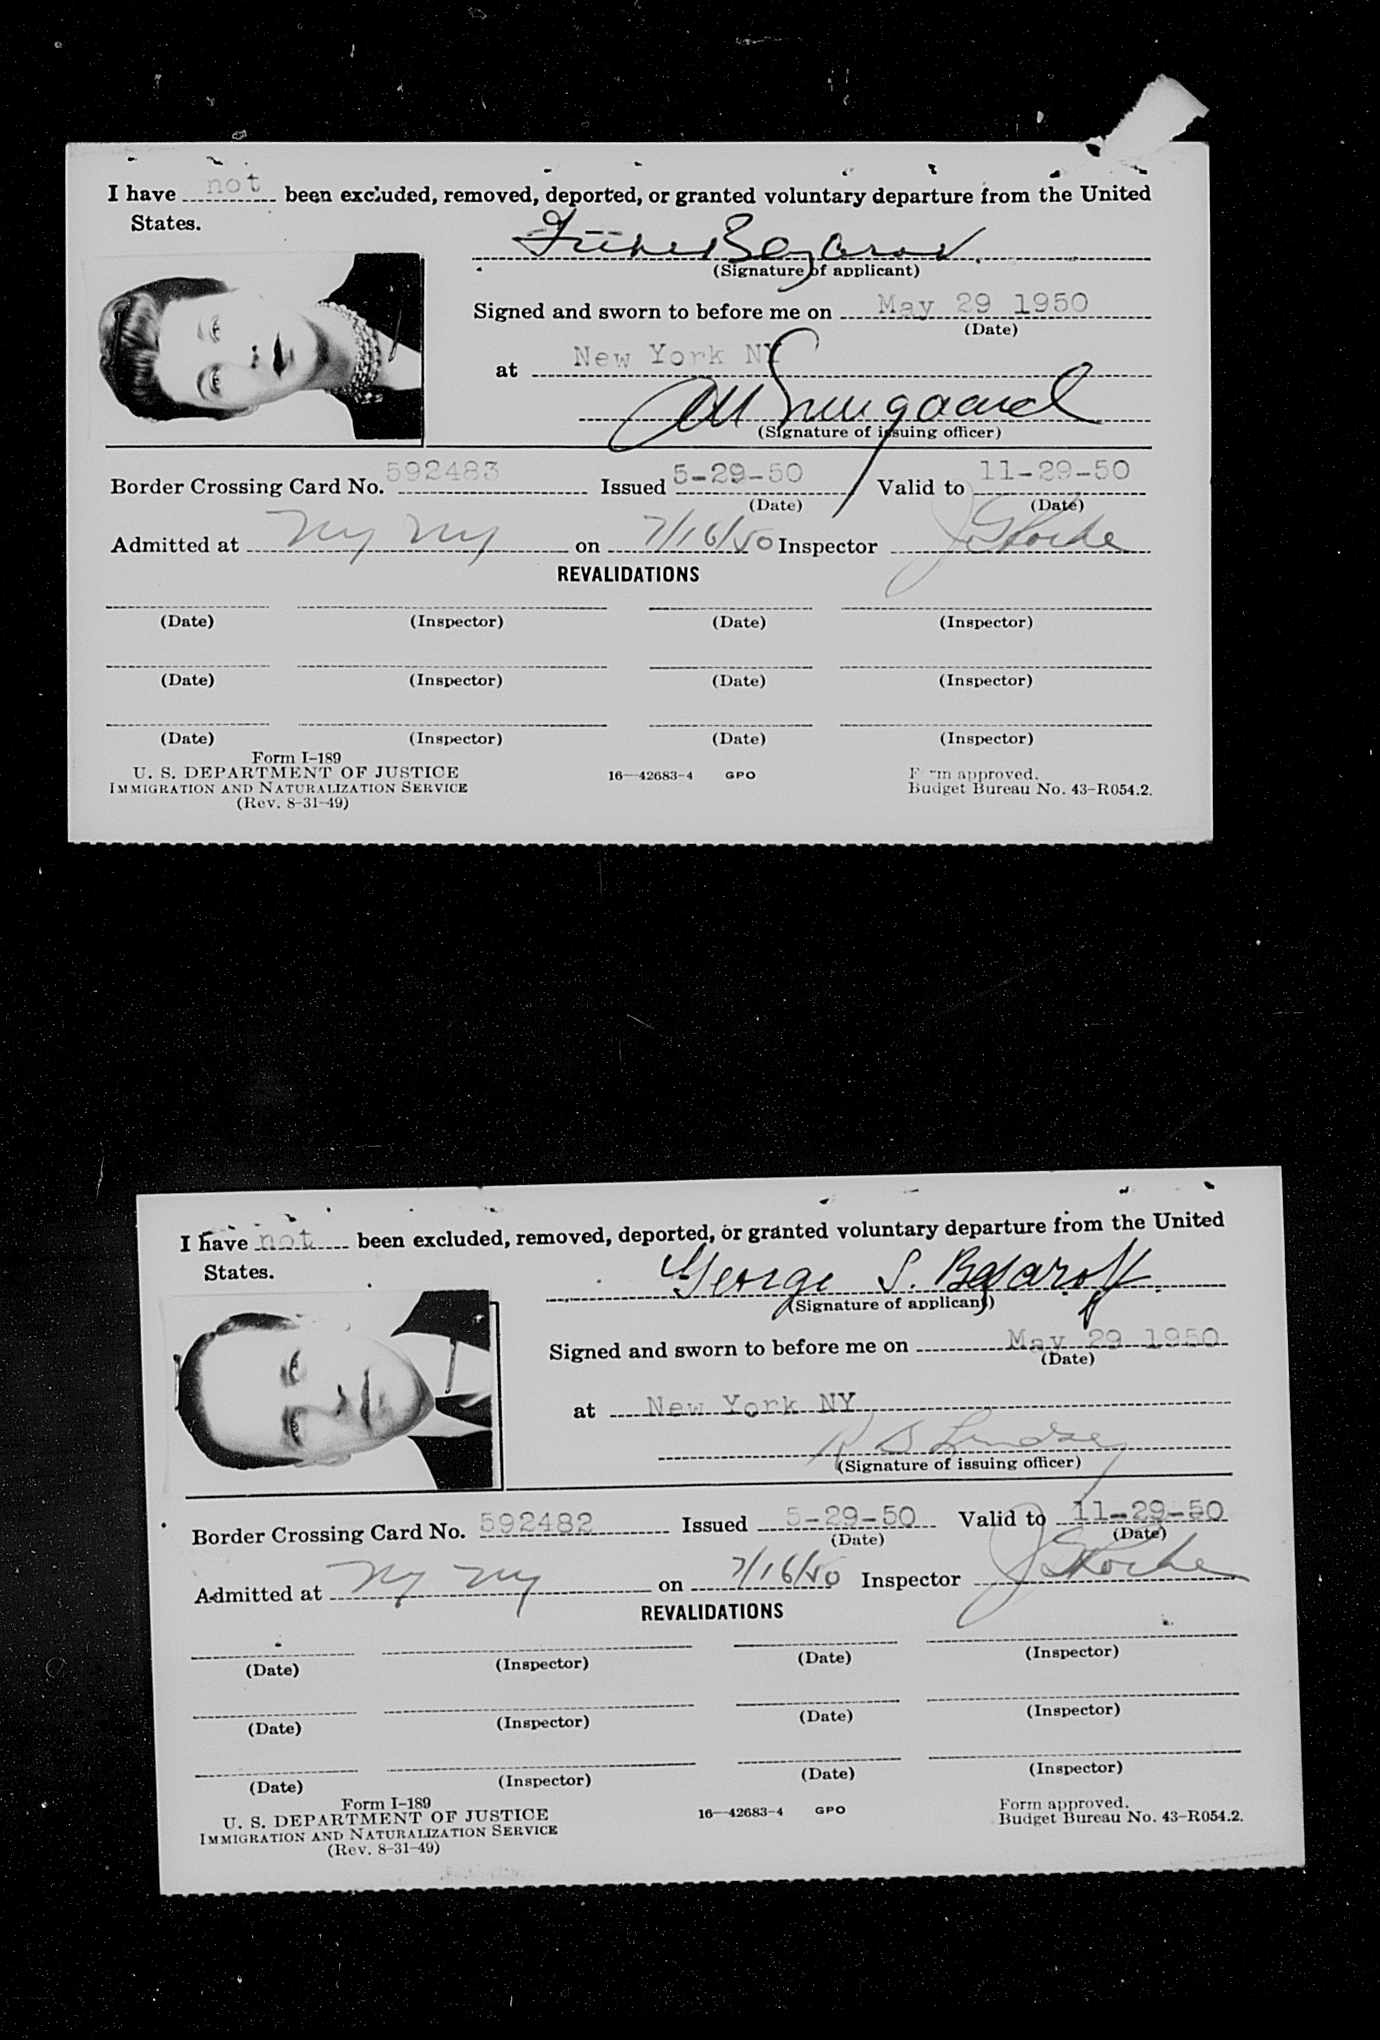 I have not been excluded, removed, deported, or granted voluntary departure from the United
States.
(Signature of applicant)
Signed and sworn to before me on May 29 1950
(Date)
at New York NY
(Signature of issuing officer)
Border Crossing Card No. 592483 Issued 5-29-50 Valid to 11-29-50
(Date) (Date)
Admitted at Ny Ny on 7/16/50 Inspector
REVALIDATIONS
(Date) (Inspector) (Date) (Inspector)
(Date) (Inspector) (Date) (Inspector)
(Date) (Inspector) (Date) (Inspector)
Form I-189
U. S. DEPARTMENT OF JUSTICE
IMMIGRATION AND NATURALIZATION SERVICE
(Rev. 8-31-49)
16—42683-4 GPO
Form approved.
Budget Bureau No. 43-R054.2.
I have not been excluded, removed, deported, or granted voluntary departure from the United
States.
George S.
(Signature of applicant)
Signed and sworn to before me on May 29 1950
(Date)
at New York NY
R S Lindsey
(Signature of issuing officer)
Border Crossing Card No. 592482 Issued 5-29-50 Valid to 11-29-50
(Date) (Date)
Admitted at Ny Ny on 7/16/50 Inspector
REVALIDATIONS
(Date) (Inspector) (Date) (Inspector)
(Date) (Inspector) (Date) (Inspector)
(Date) (Inspector) (Date) (Inspector)
Form I-189
U. S. DEPARTMENT OF JUSTICE
IMMIGRATION AND NATURALIZATION SERVICE
(Rev. 8-31-49)
16—42683-4 GPO
Form approved.
Budget Bureau No. 43-R054.2.